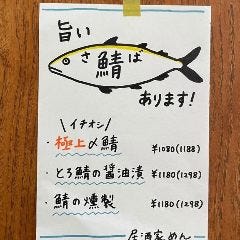 旨い
さば
鯖
あります!
\イチオシ/
・極上〆鯖 ¥1080(1188)
・とろ鯖の醤油漬 ¥1180(1298)
・鯖の燻製 ¥1180(1298)
居酒家めん